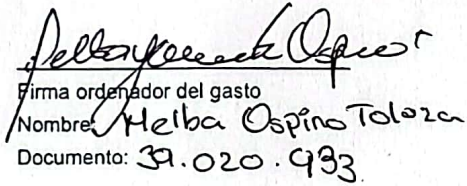 Firma ordenador del gasto
Nombre: Melba Ospino Toloza
Documento: 39.020.933